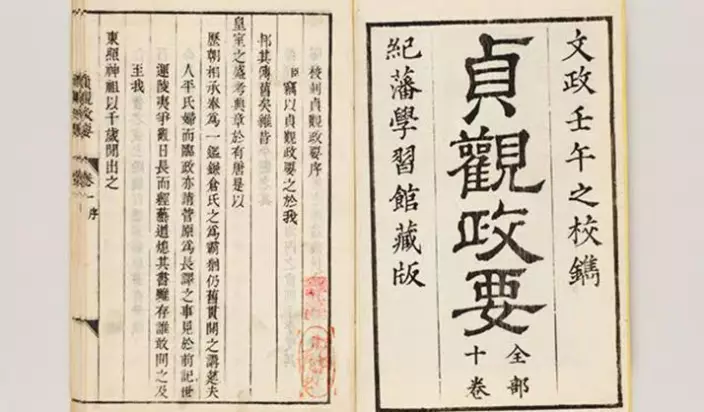 文政壬午之校鐫
貞觀政要
全部
十卷
紀藩學習館藏版
校刻貞觀政要序
臣竊以貞觀政要之於我
邦其傳舊矣
皇室之盛考典章於有唐是以
歷朝相承奉為一鑑鎌倉氏之為霸猶仍舊貫開之講筵夫
人平氏婦而臨政亦請菅原為長譯之事見於前記世
運陵夷爭日長而經藝道熄其書雖存誰敢問之及
至我
東照神祖以千歲出之
貞觀政要 卷一 序